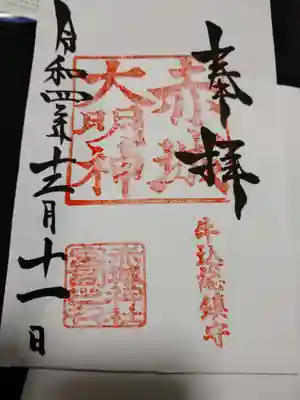 奉拝
牛込総鎮守
赤城
大明神
赤城神社
令和四年十二月十一日